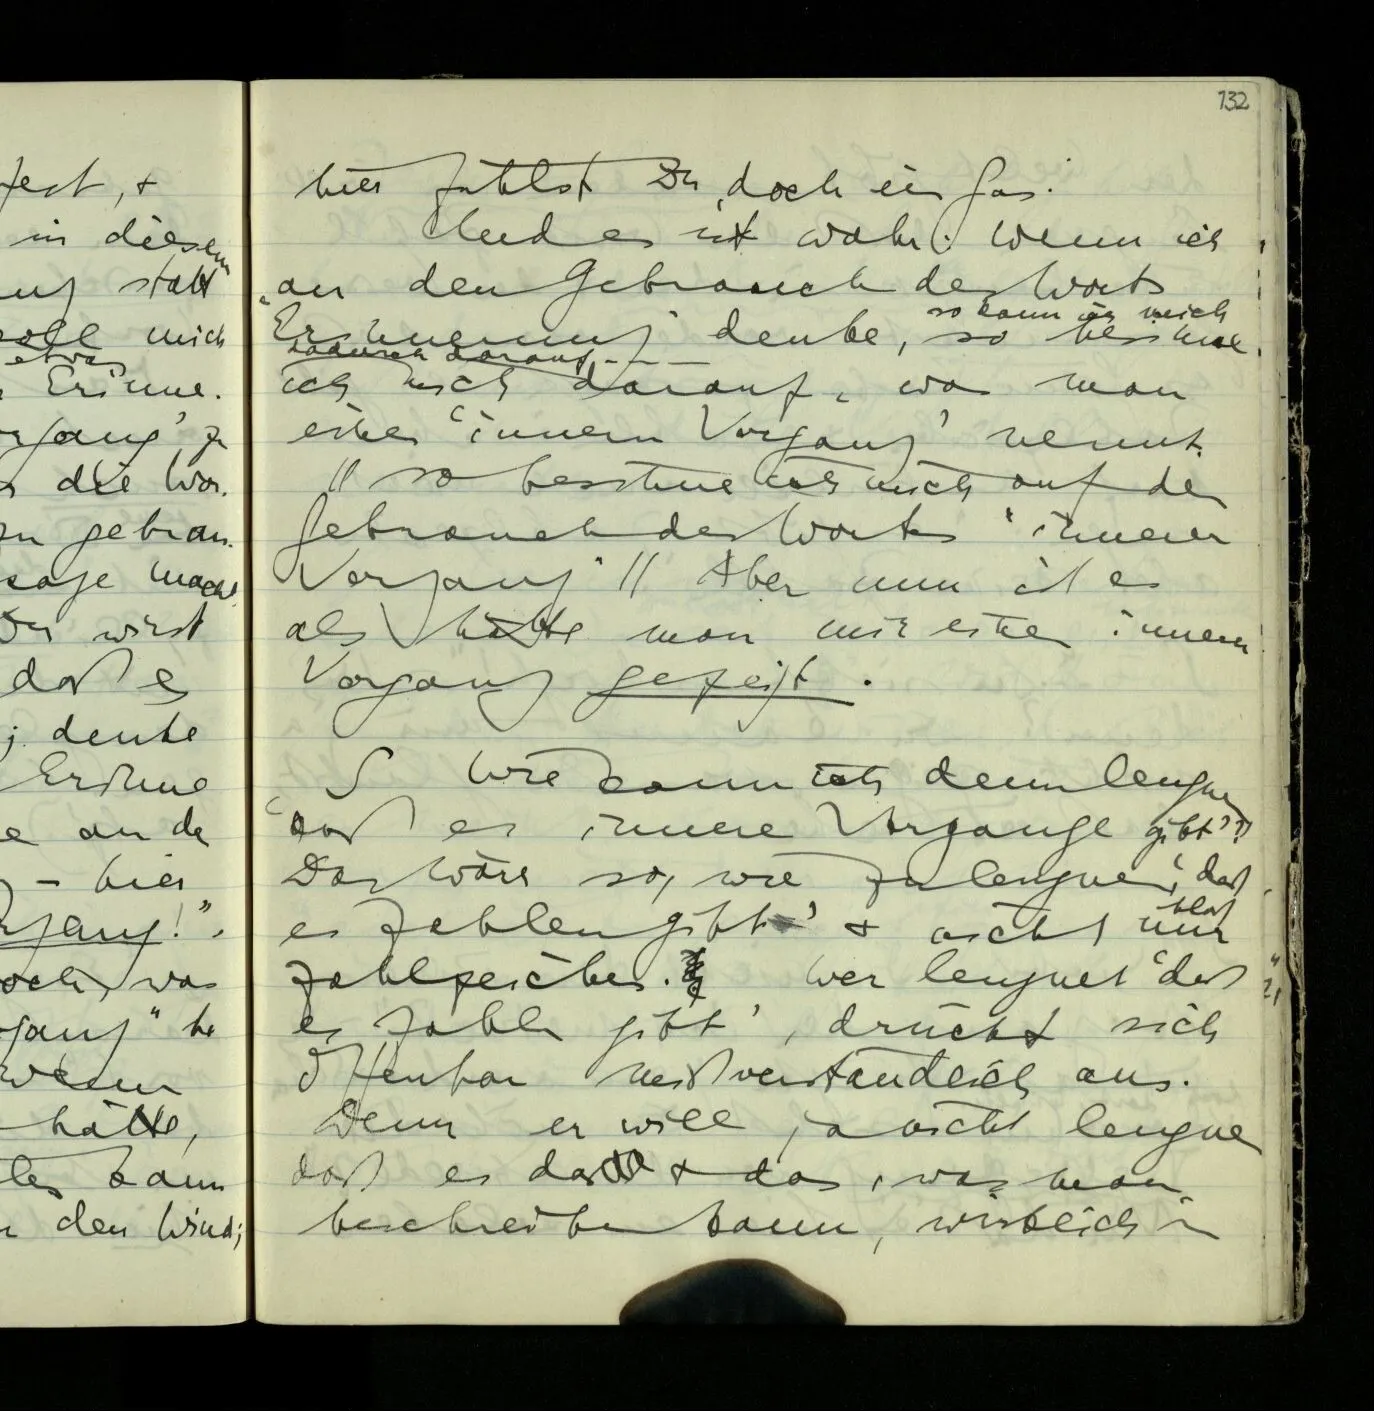 fest, +
in diesem
statt
soll mich
etwas
Erinne-
organg' zu
die Wor-
zu gebrau-
sage macht
Du wirst
daß es
; denke
Erinne
e an de
– hier
organg!".
doch, was
gang" be
wenn
hätte,
kann
den Wind;
132
hier fühlst Du doch ein Gas.
Und es ist wahr: Wenn ich
an den Gebrauch des Worts
so kann ich mich
'Erinnerung' denke, so besinne
dadurch darauf – – –
ich mich darauf, was man
einen 'innern Vorgang' nennt.
// so besinne ich mich auf den
Gebrauch des Worts 'innerer
Vorgang' // Aber nun ist es
als hätte man mir einen innern
Vorgang gezeigt.
S Wie kann ich denn leugnen
'daß es innere Vorgänge gibt'?
Das wäre so, wie zu leugnen, 'daß
es Zahlen gibt' + nicht nur
bloß
Zahlzeichen. Wer leugnet 'daß
es Zahlen gibt', drückt sich
offenbar mißverständlich aus.
Denn er will ja nicht leugnen
daß es das + das, was man
beschreiben kann, wirklich in